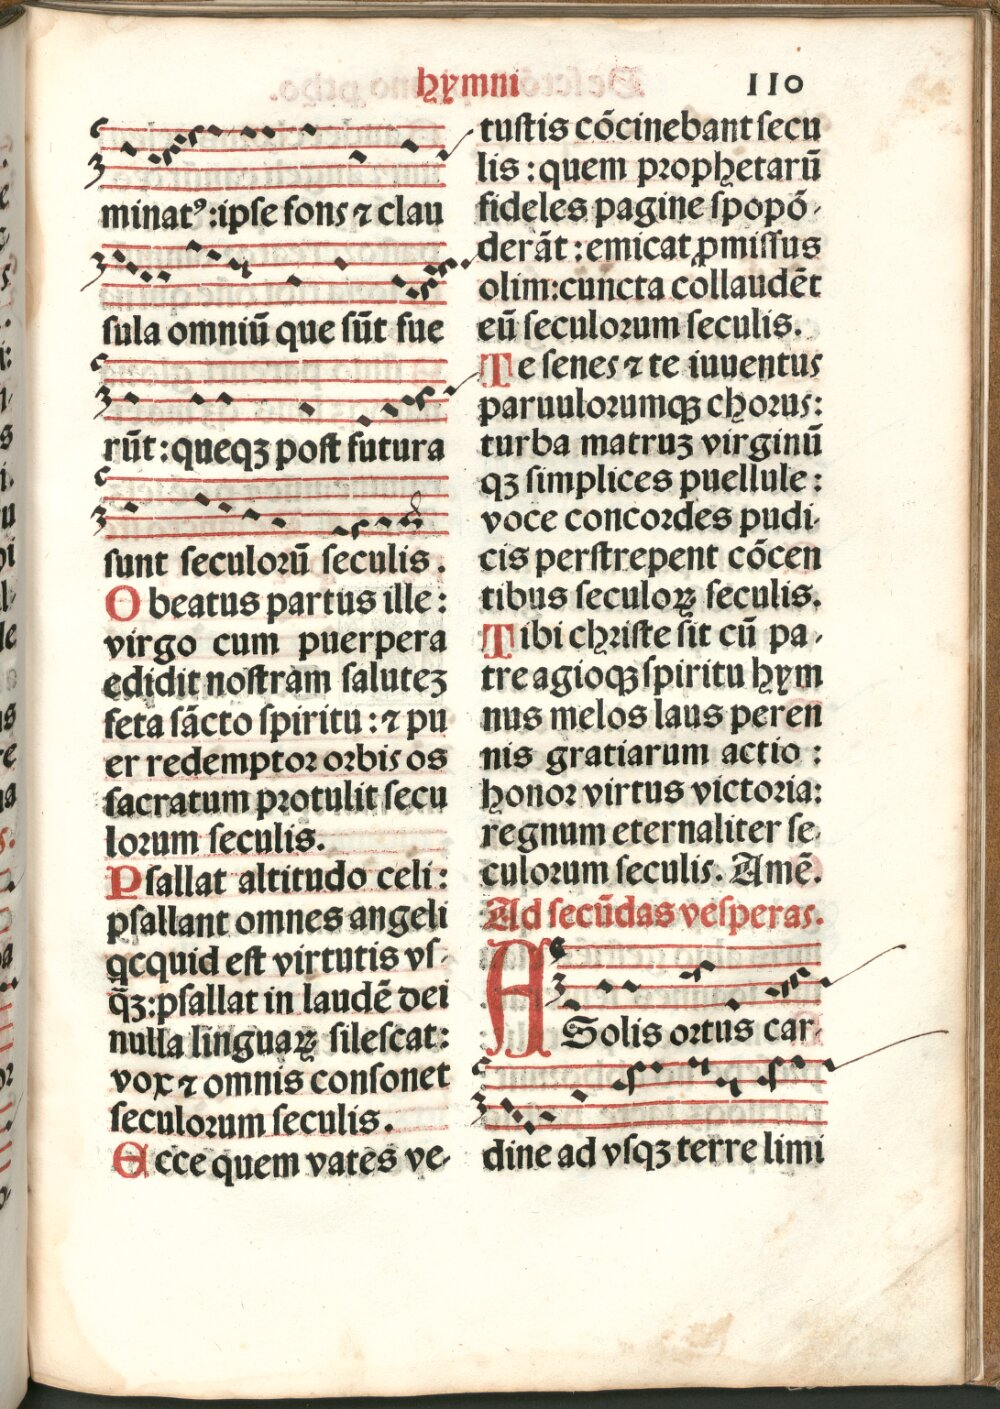 hymni 110
minatꝰ:ipse fons ⁊ clau
sula omniū que sūt fue
rūt:queqꝫ post futura
sunt seculorū seculis.
O beatus partus ille:
virgo cum puerpera
edidit nostram saluteꝫ
feta sācto spiritu:⁊ pu
er redemptor orbis os
sacratum protulit secu
lorum seculis.
Psallat altitudo celi:
psallant omnes angeli
qcquid est virtutis vs-
q̄ꝫ:psallat in laudē dei
nulla linguaꝝ silescat:
vox ⁊ omnis consonet
seculorum seculis.
Ecce quem vates ve-
tustis cōcinebant secu
lis:quem prophetarū
fideles pagine spopō-
derāt:emicat ꝓmissus
olim:cuncta collaudēt
eū seculorum seculis.
Te senes ⁊ te iuuentus
paruulorumqꝫ chorus:
turba matruꝫ virginū
qꝫ simplices puellule:
voce concordes pudi-
cis perstrepent cōcen
tibus seculoꝝ seculis.
Tibi christe sit cū pa-
tre agioqꝫ spiritu hym
nus melos laus peren
nis gratiarum actio:
honor virtus victoria:
regnum eternaliter se-
culorum seculis. Amē.
Ad secūdas vesperas.
A Solis ortus car-
dine ad vsqꝫ terre limi